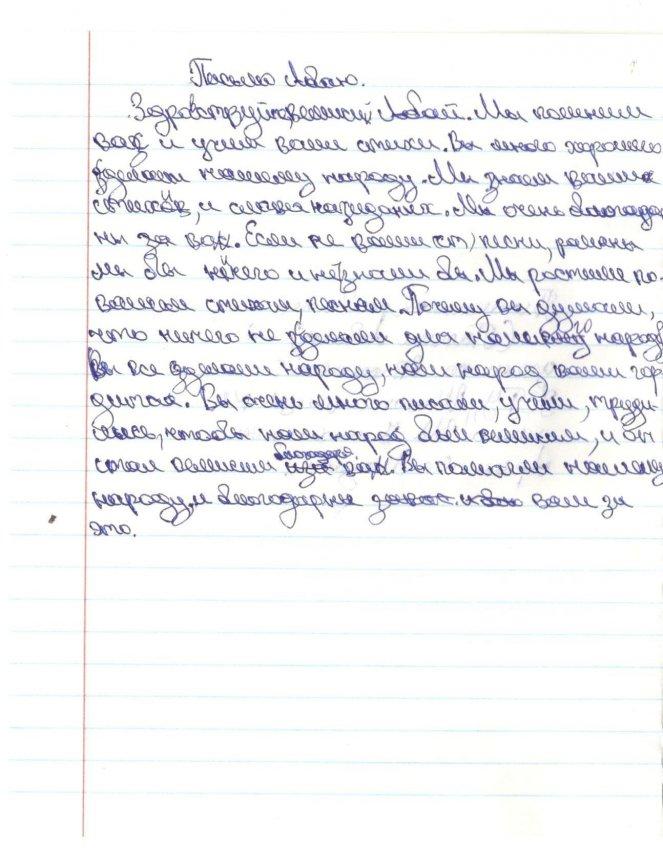 Письмо Абаю.
Здравствуй великий Абай. Мы помним
вас и учим ваши стихи. Вы много хорошего
сделали нашему народу. Мы знаем ваших
стихов, и слова назидания. Мы очень благодар
ны за вас. Если не ваши стихи, песни, романы
мы бы нечего и не значили бы. Мы растили по
вашим стихам, поэмам. Почему вы думали,
что ничего не сделали для нашего народу
Вы все сделали народу, наш народ вами гор
дится. Вы очень много писали, учили, труди
лись, чтобы наш народ был великим, и он
стал великим благодаря вас. Вы помогли нашему
народу, и благодарны вам за
это.